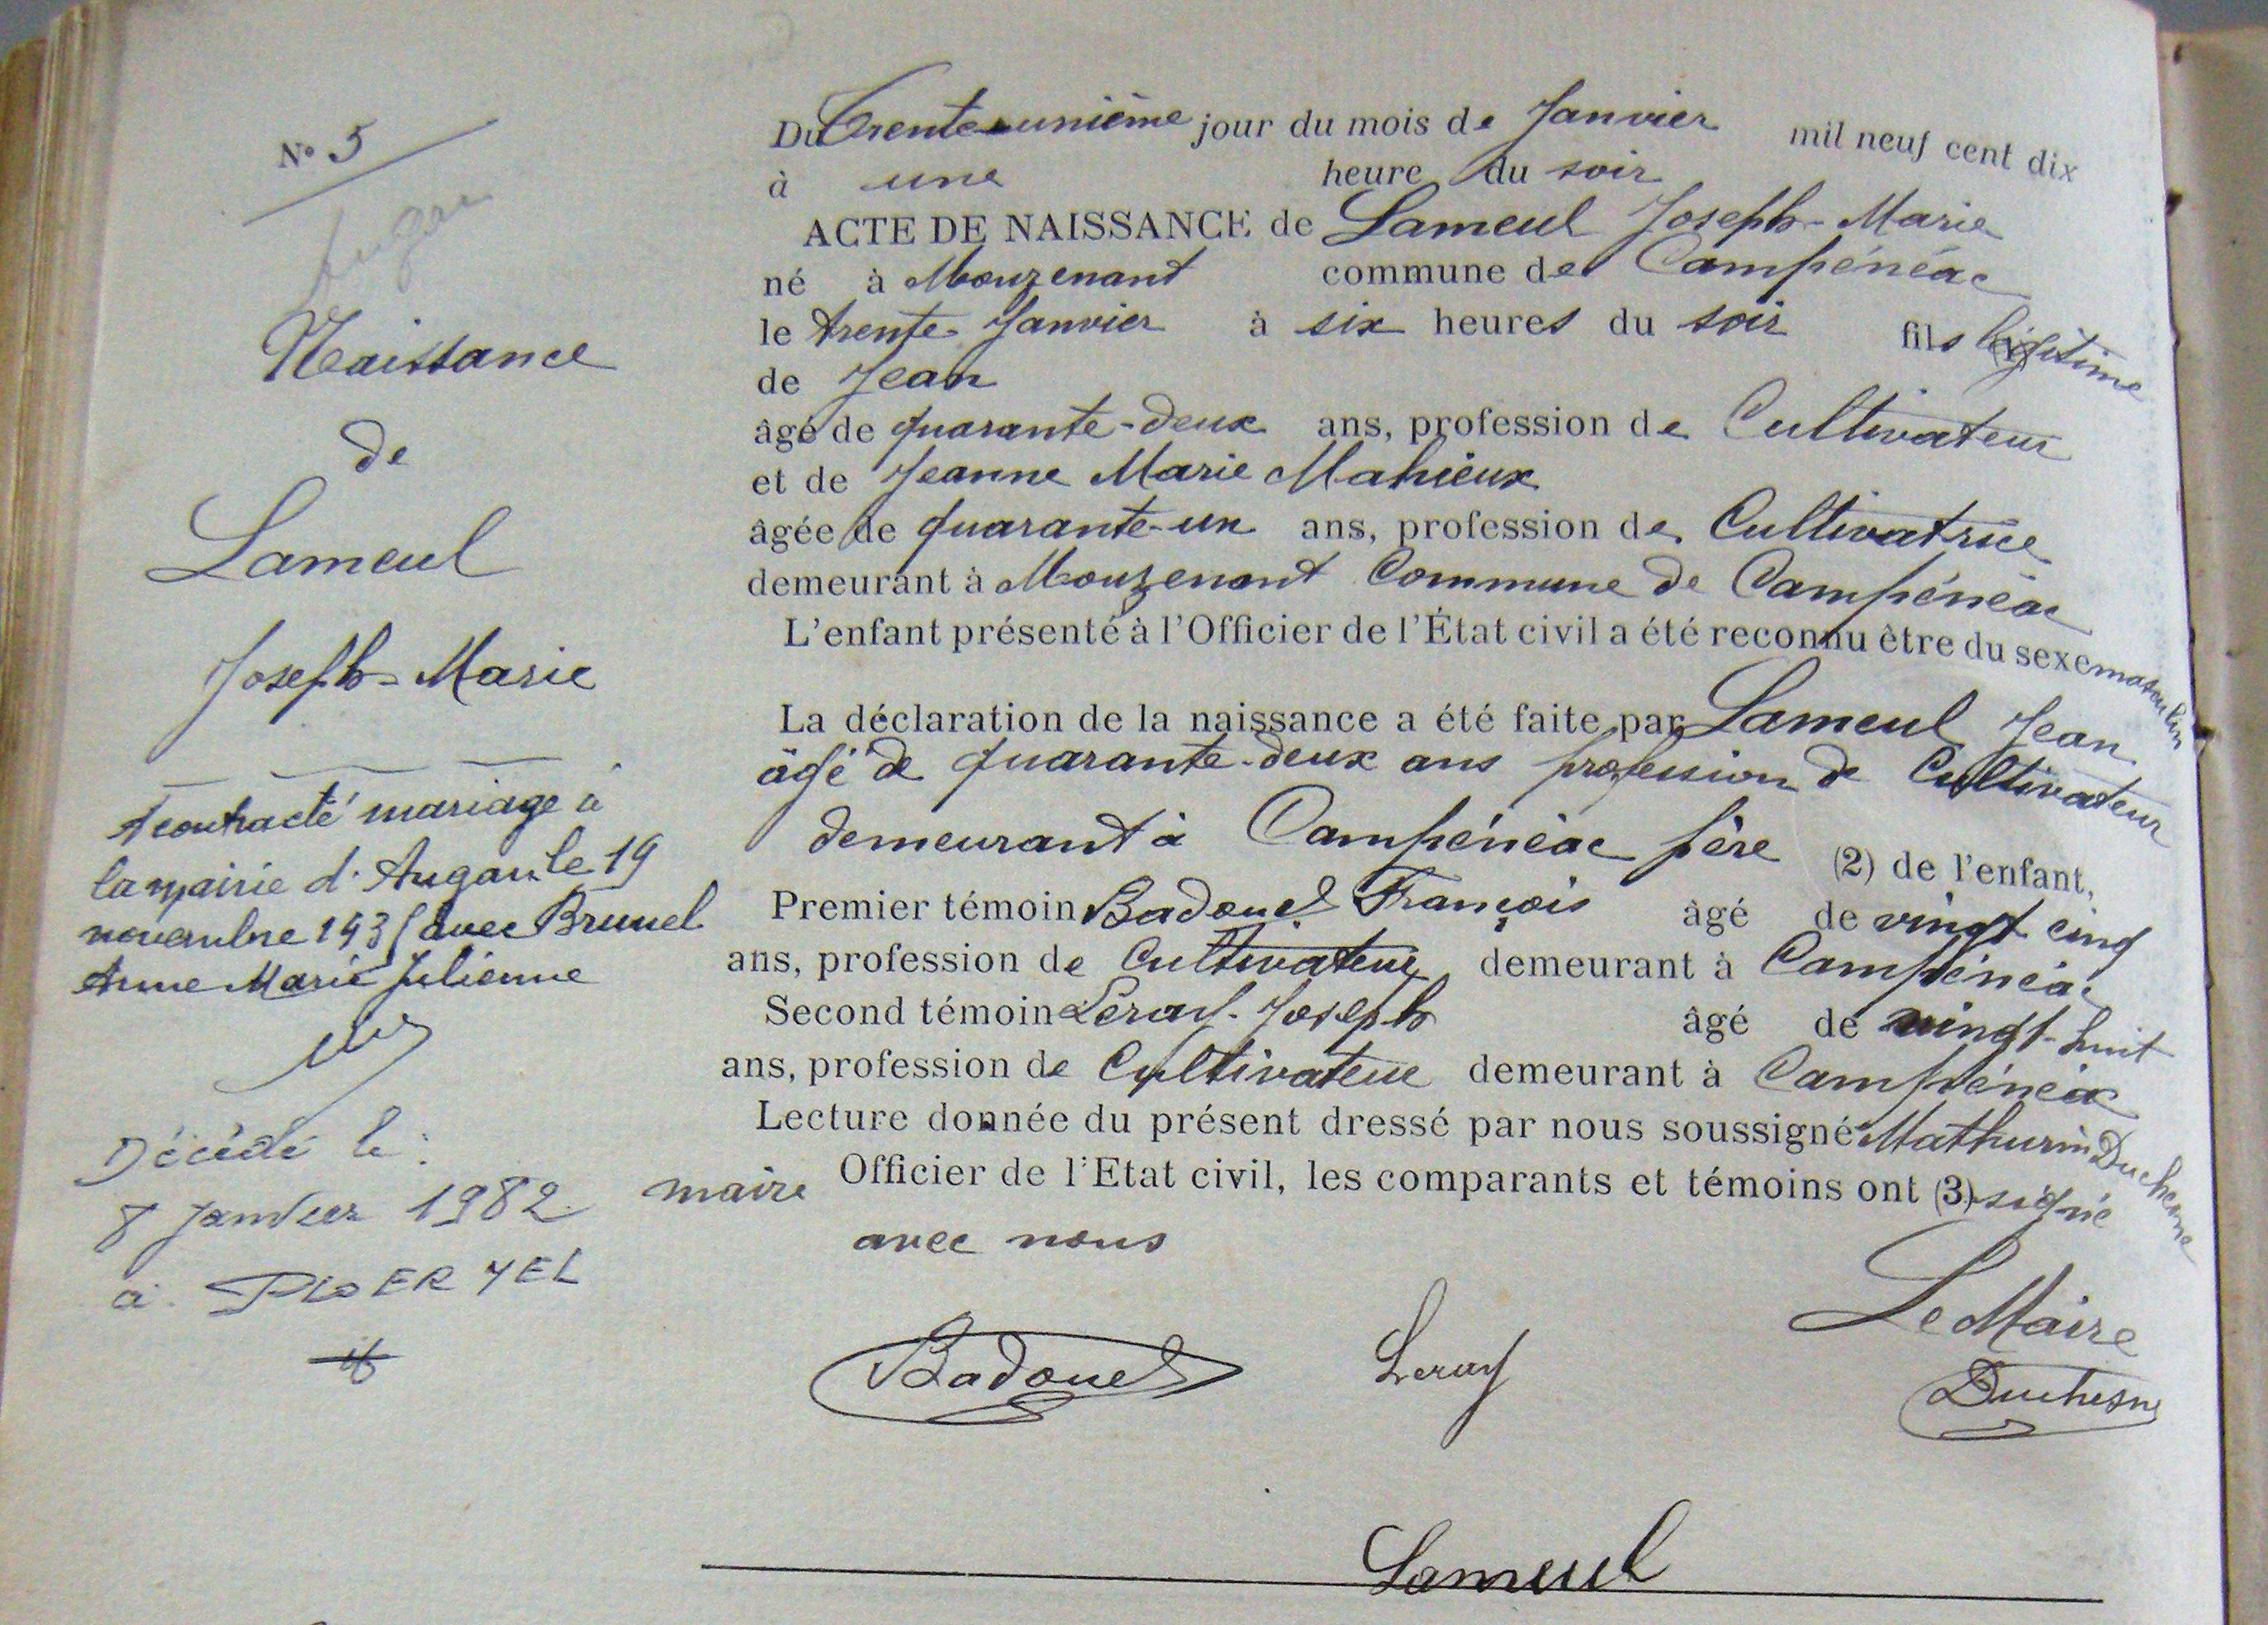 N° 5
Augan
Naissance
de
Lameul
Joseph-Marie
A contracté mariage à
la mairie d'Augan le 19
novembre 1935 avec Brunel
Anne Marie Julienne
Décédé le :
8 Janvier 1982
à PLOERMEL
Du Trente-unième jour du mois de Janvier mil neuf cent dix
à une heure du soir
ACTE DE NAISSANCE de Lameul Joseph-Marie
né à Mouzenant commune de Campénéac
le trente Janvier à six heures du soir fils légitime
de Jean
âgé de quarante-deux ans, profession de Cultivateur
et de Jeanne Marie Mahieux
âgée de quarante-un ans, profession de Cultivatrice
demeurant à Mouzenant Commune de Campénéac
L'enfant présenté à l'Officier de l'État civil a été reconnu être du sexe masculin
La déclaration de la naissance a été faite par Lameul Jean
âgé de quarante-deux ans profession de Cultivateur
demeurant à Campénéac père (2) de l'enfant,
Premier témoin Badouel François âgé de vingt cinq
ans, profession de Cultivateur demeurant à Campénéac
Second témoin Leray Joseph âgé de vingt-huit
ans, profession de Cultivateur demeurant à Campénéac
Lecture donnée du présent dressé par nous soussigné Mathurin Duchesne
maire Officier de l'Etat civil, les comparants et témoins ont (3) signé
avec nous
Le Maire
Badouel Leray Duchesne
Lameul